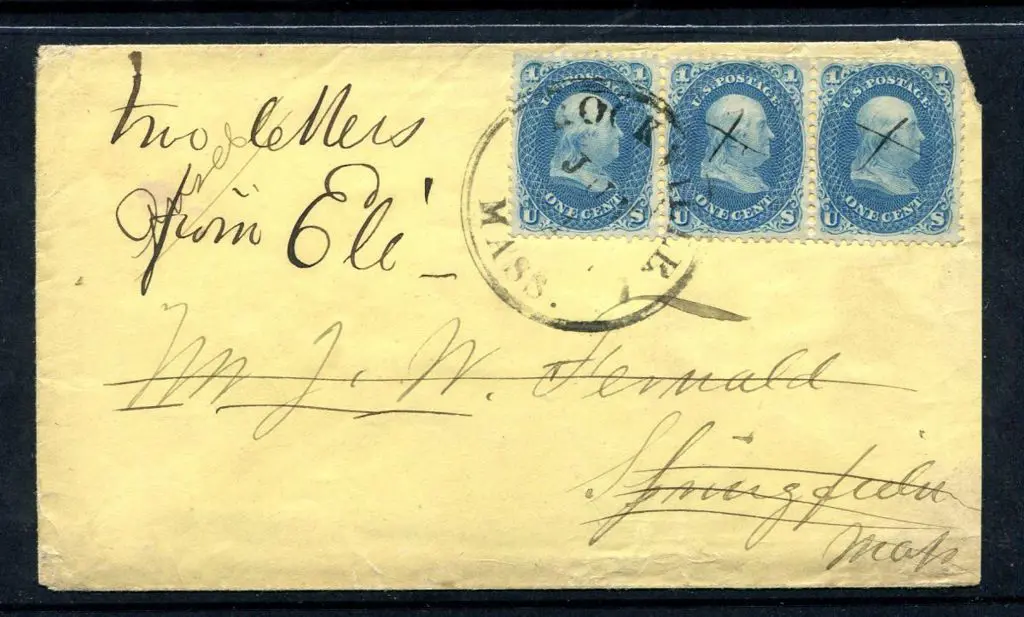 two letters
from Eli
1 U.S. POSTAGE 1
ONE CENT
U S
1 U.S. POSTAGE 1
ONE CENT
U S
1 U.S. POSTAGE 1
ONE CENT
U S
ROCKVILLE
MASS.
Mr J. W. Fernald
Springfield
Mass